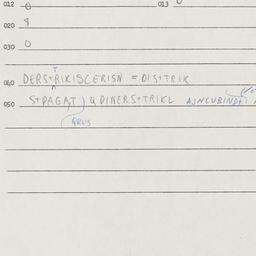 012 0 013 0
020 8
030 0
040 DERS+RIKISCERISN = DIS+TRIK
050 S+PAGAT) U DINERS+TRIKL AJNCUBIND
QRUS